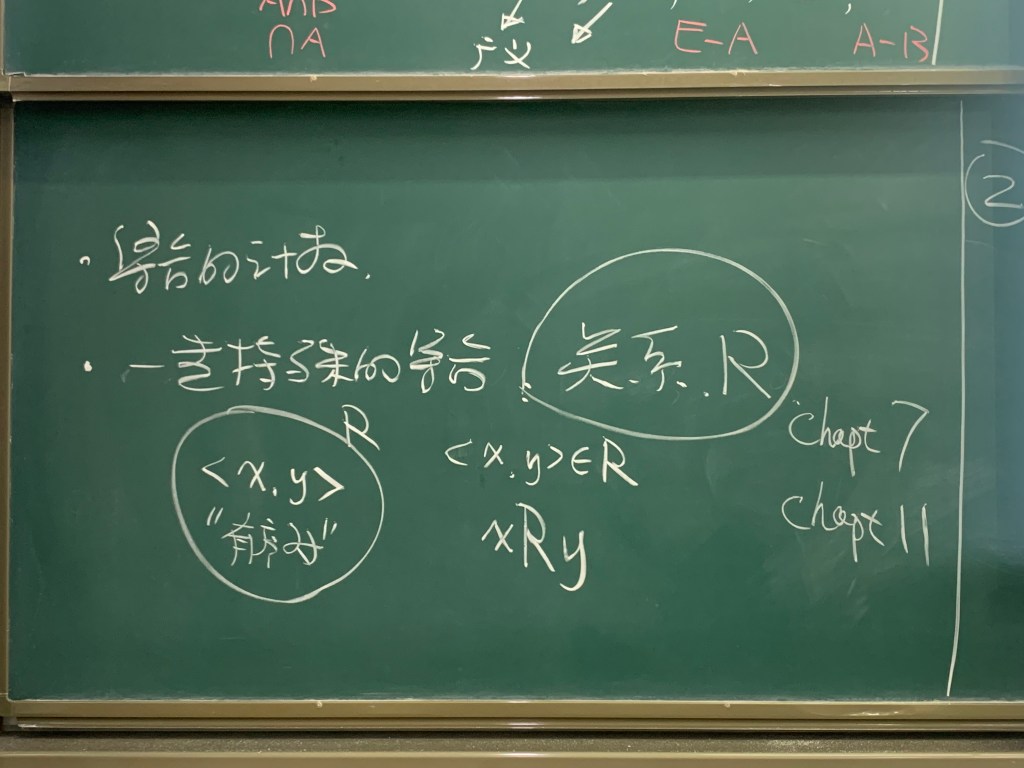 A∩B
∩A 广义 E-A A-B
②
· 集合的计数.
· 一些特殊的集合. 关系.R
R
<x,y>
"有序对"
<x,y>∈R
xRy
chapt 7
chapt 11